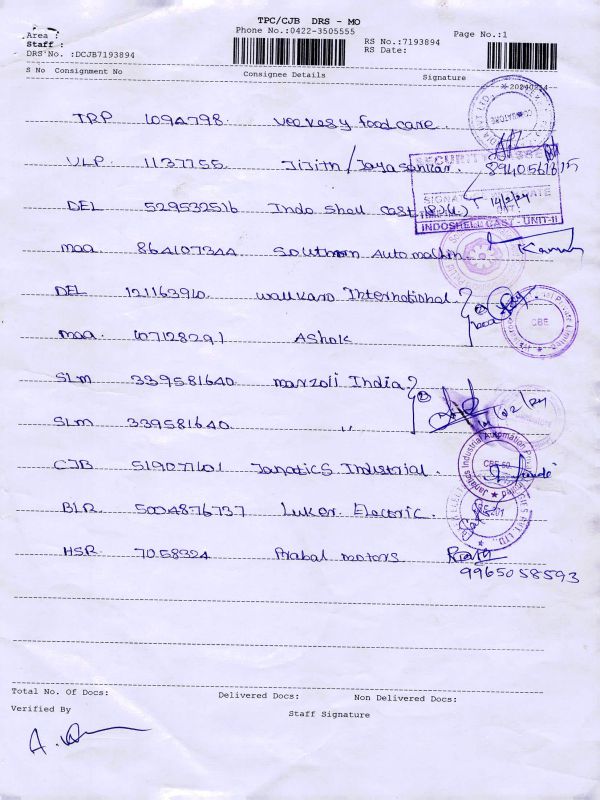 TPC/CJB DRS - MO
Area :
Phone No.:0422-3505555
Page No.:1
Staff :
RS No.:7193894
DRS No. :DCJB7193894
RS Date:
S No Consignment No Consignee Details Signature
20240214
TRP 1094798 veevesy foodcare
VLP 1137255 Jijith / Jayasankar 8940561615
SECURITY
SIGNATURE DATE 14/2/24
DEL 529532516 Indo shell cast (P) (U)
INDOSHELL CAST - UNIT-II
maa 864107344 Southern Automachin
DEL 121163910 wallkaro International
CBE
maa 107128291 Ashok
SLM 339581640 marzoli India
SLM 339581640 "
14/02/24
CJB 519071101 Janatics Industrial
Janatics Industrial Automation Private Limited
BLR 5004876737 Luker Electric
HSR 7058324 Prabal motors
9965058593
Total No. Of Docs: Delivered Docs: Non Delivered Docs:
Verified By
Staff Signature